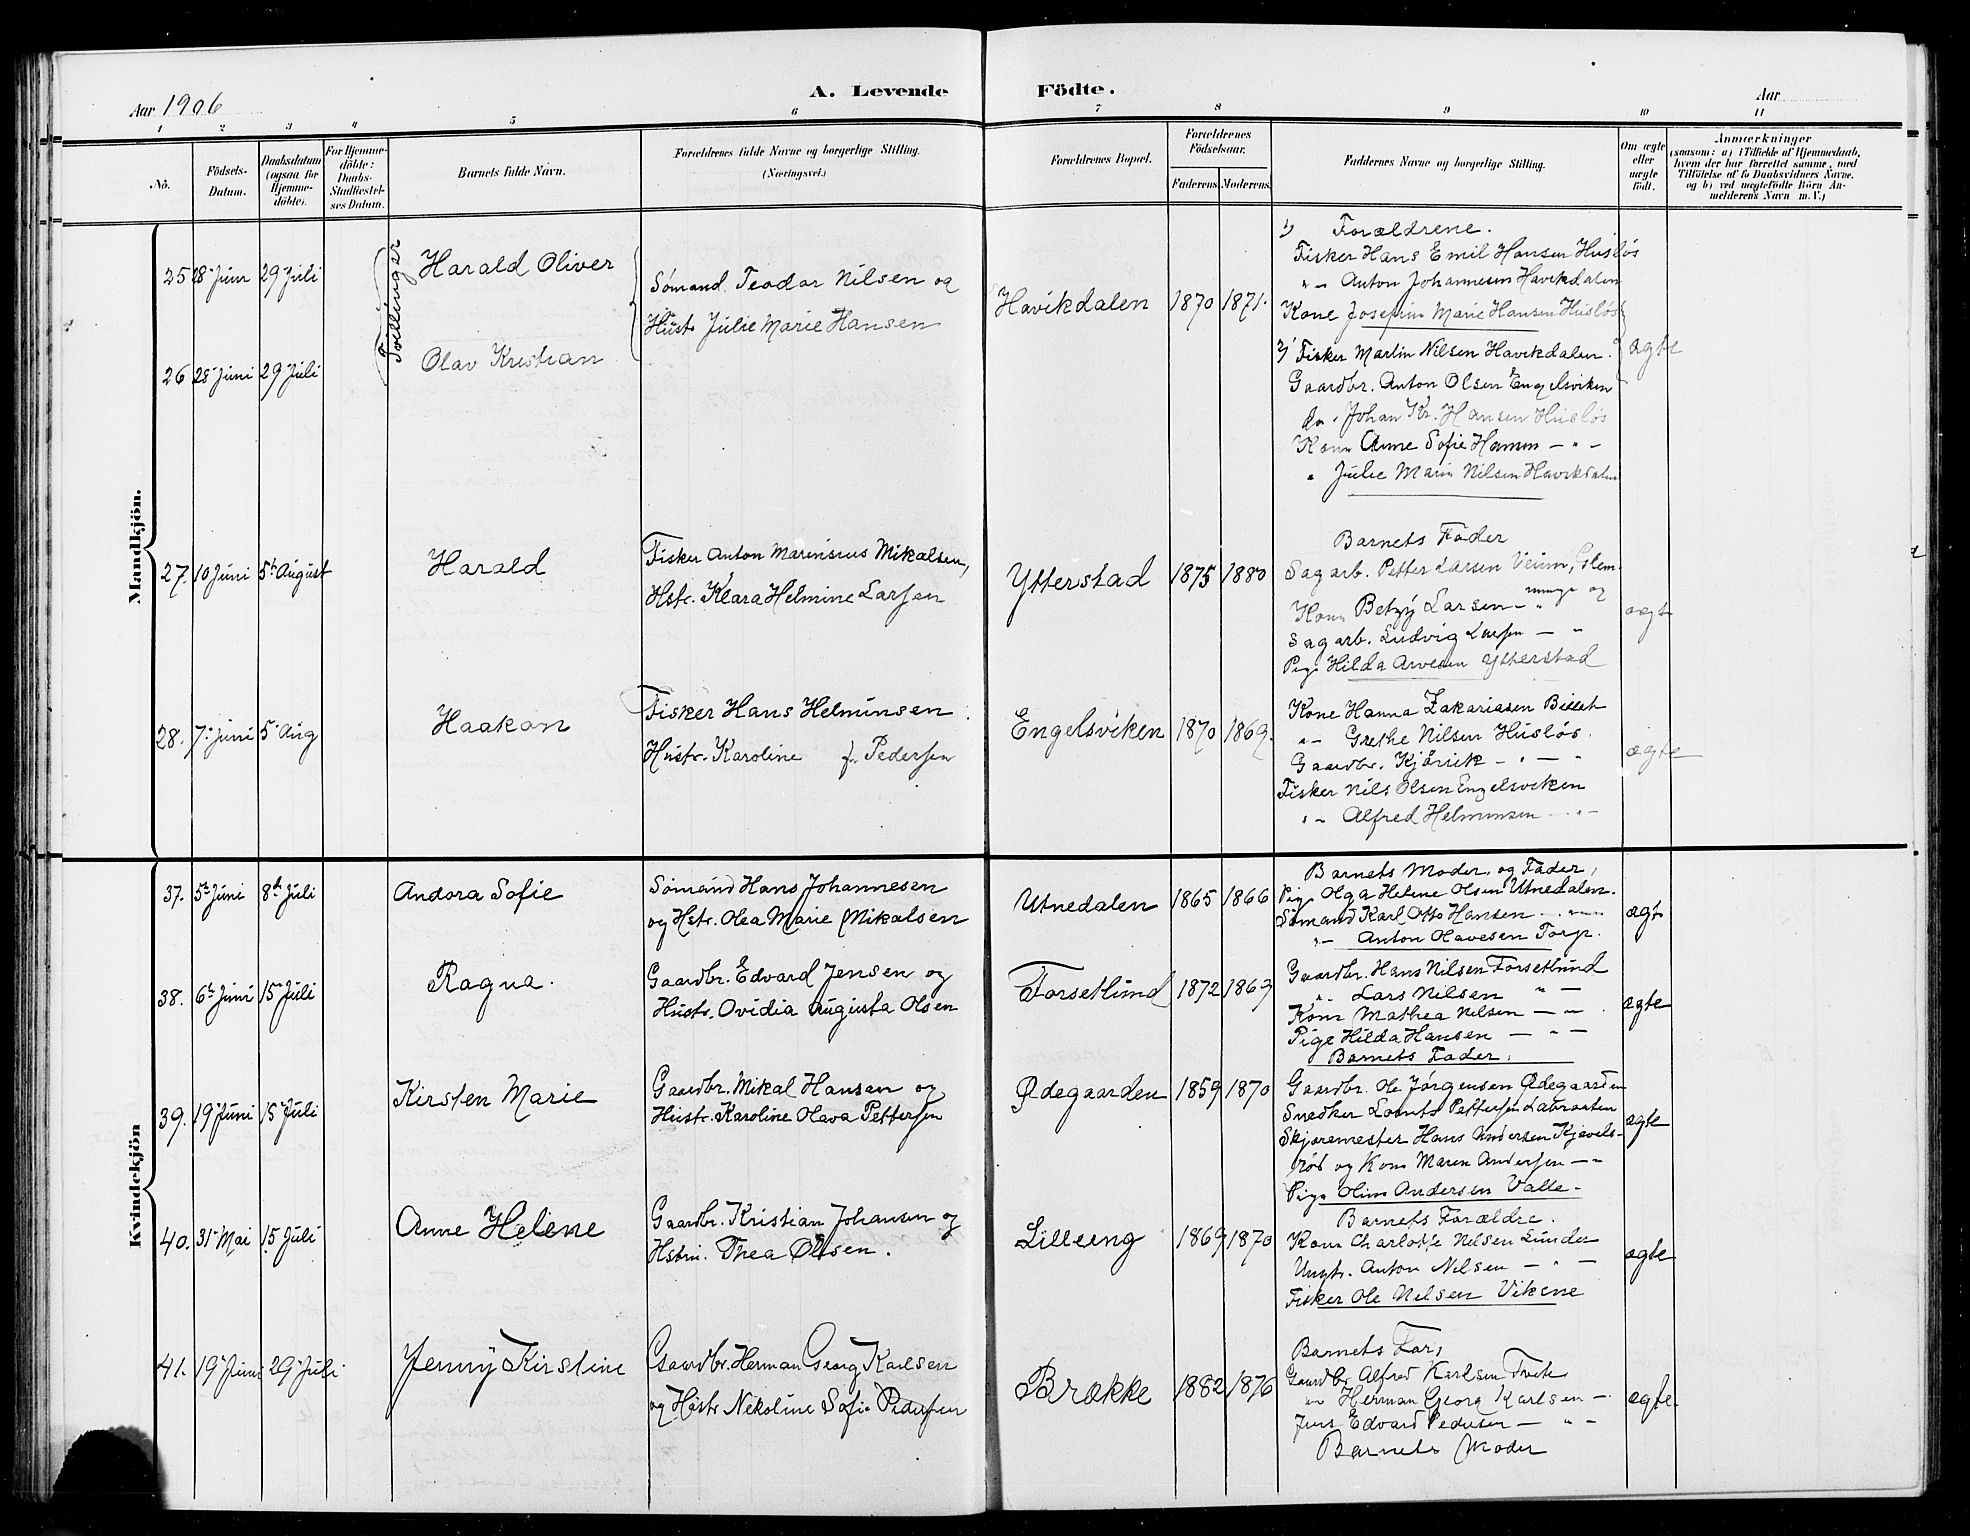 Aar 1906
A. Levende Födte.
Aar
1 2 3 4 5 6 7 8 9 10 11
No.
Födsels-Datum.
Daabsdatum (ogsaa for Hjemme-döbte).
For Hjemme-döbte: Daabs-Stadfæstel-ses Datum.
Barnets fulde Navn.
Forældrenes fulde Navne og borgerlige Stilling. (Næringsvei.)
Forældrenes Bopæl.
Forældrenes Födselsaar.
Faderens. Moderens.
Faddernes Navne og borgerlige Stilling.
Om ægte eller uægte födt.
Anmærkninger
(saasom: a) i Tilfælde af Hjemmedaab,
hvem der har forrettet samme, med
Tilföielse af to Daabsvidners Navne,
og b) ved uægtefödte Börn An-
melderens Navn m. V.)
Mandkjön.
Tvillinger
25 28 Juni 29 Juli Harald Oliver
Sømand Teodor Nilsen og
Hustr Julie Marie Hansen
Havikdalen 1870 1871.
1/ Forældrene.
Fisker Hans Emil Hansen Husløs
"- Anton Johannesen Havikdalen
Kone Josefine Marie Hansen Husløs
26 28 Juni 29 Juli Olav Kristian
2/ Fisker Martin Nilsen Havikdalen.
Gaardbr. Anton Olsen Engelsviken
do. Johan Kr. Hansen Husløs
Kone Anne Sofie Hansen - " -
" Julie Marie Nilsen Havikdalen
ægte
27. 10 Juni 5te August Harald
Fisker Anton Marinsius Mikalsen,
Hstr. Klara Helmine Larsen
Ytterstad 1875 1880
Barnets Fader
Sagarb. Petter Larsen Veum, Glem
minge og
Kone Betzy Larsen - "
Sagarb. Ludvig Larsen - "
Pige Hilda Arvesen Ytterstad
ægte
28. 7 Juni 5 Aug Haakon
Fisker Hans Helminsen
Hustr. Karoline f. Pedersen
Engelsviken 1870 1869.
Kone Hanna Zakariasen
"- Grethe Nilsen Husløs.
Gaardbr. - " - "
Fisker Nils Olsen Engelsviken
"- Alfred Helminsen - " -
ægte
Kvindekjön
37. 5te Juni 8de Juli Andora Sofie
Sømand Hans Johannesen
og Hstr. Olea Marie Mikalsen
Utnedalen 1865 1866
Barnets Moder og Fader,
Pige Olga Helene Olsen Utnedalen.
Sømand Karl Otto Hansen - " -
"- Anton Olavesen Torp.
ægte
38. 6te Juni 15 Juli Ragna.
Gaardbr. Edvard Jensen og
Hustr. Ovidia Augusta Olsen
Forsetlund 1872 1869
Gaardbr. Hans Nilsen Forsetlund
"- Lars Nilsen " -
Kone Mathea Nilsen - " -
Pige Hilda Hansen - " -
Barnets Fader.
ægte
39. 19 Juni 15 Juli Kirsten Marie
Gaardbr. Mikal Hansen og
Hustr. Karoline Olava Pettersen
Ødegaarden 1859 1870
Gaardbr. Ole Jørgensen Ødegaarden
Snedker Pettersen Labraaten
Skjæremester Hans Andersen Kjævels-
rød og Kone Maren Andersen - "
Pige Oline Andersen Valle -
ægte
40. 31 Mai 15 Juli Anne Helene
Gaardbr. Kristian Johansen og
Hstru. Thea Olsen.
Lilleeng 1869 1870
Barnets Forældre.
Kone Charlotte Nilsen Lunder
Ungk. Anton Nilsen - " -
Fisker Ole Nilsen Vikene
ægte
41. 19 Juni 29 Juli Jenny Kirstine
Gaardbr. Herman Georg Karlsen
og Hstr Nekoline Sofie Pedersen
Brække 1882 1876
Barnets Far,
Gaardbr Alfred Karlsen Tvete
"- Herman Georg Karlsen -
Jens Edvard Pedersen - " -
Barnets Moder
ægte.